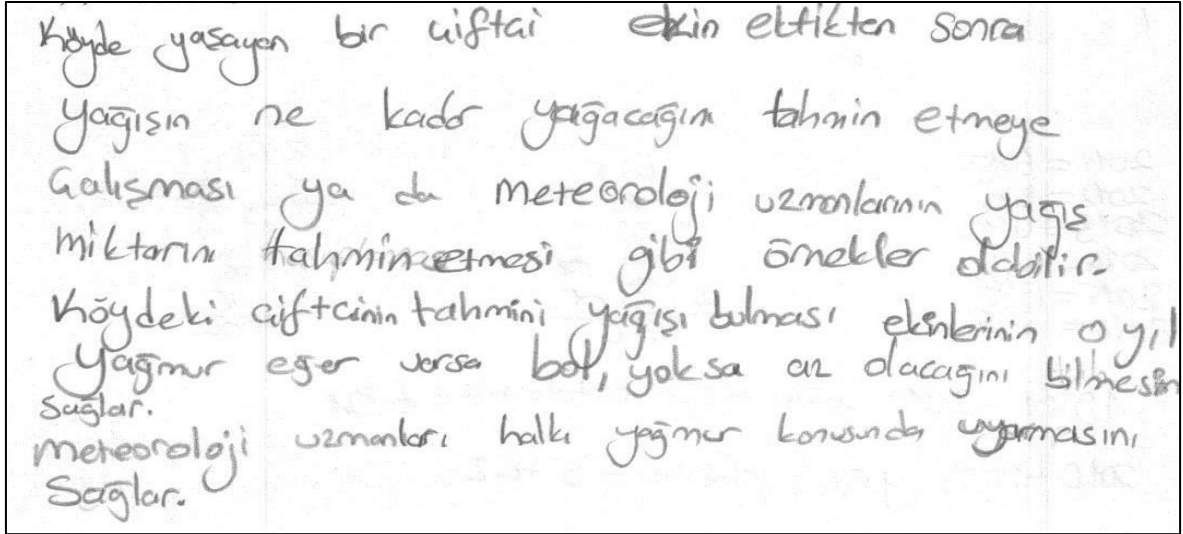 Köyde yaşayan bir çiftçi ekin ektikten sonra
yağışın ne kadar yağacağını tahmin etmeye
çalışması ya da meteoroloji uzmanlarının yağış
miktarını tahmin etmesi gibi örnekler olabilir.
Köydeki çiftçinin tahmini yağışı bulması ekinlerinin o yıl
yağmur eğer varsa bol, yoksa az olacağını bilmesini
sağlar.
meteoroloji uzmanları halkı yağmur konusunda uyarmasını
sağlar.